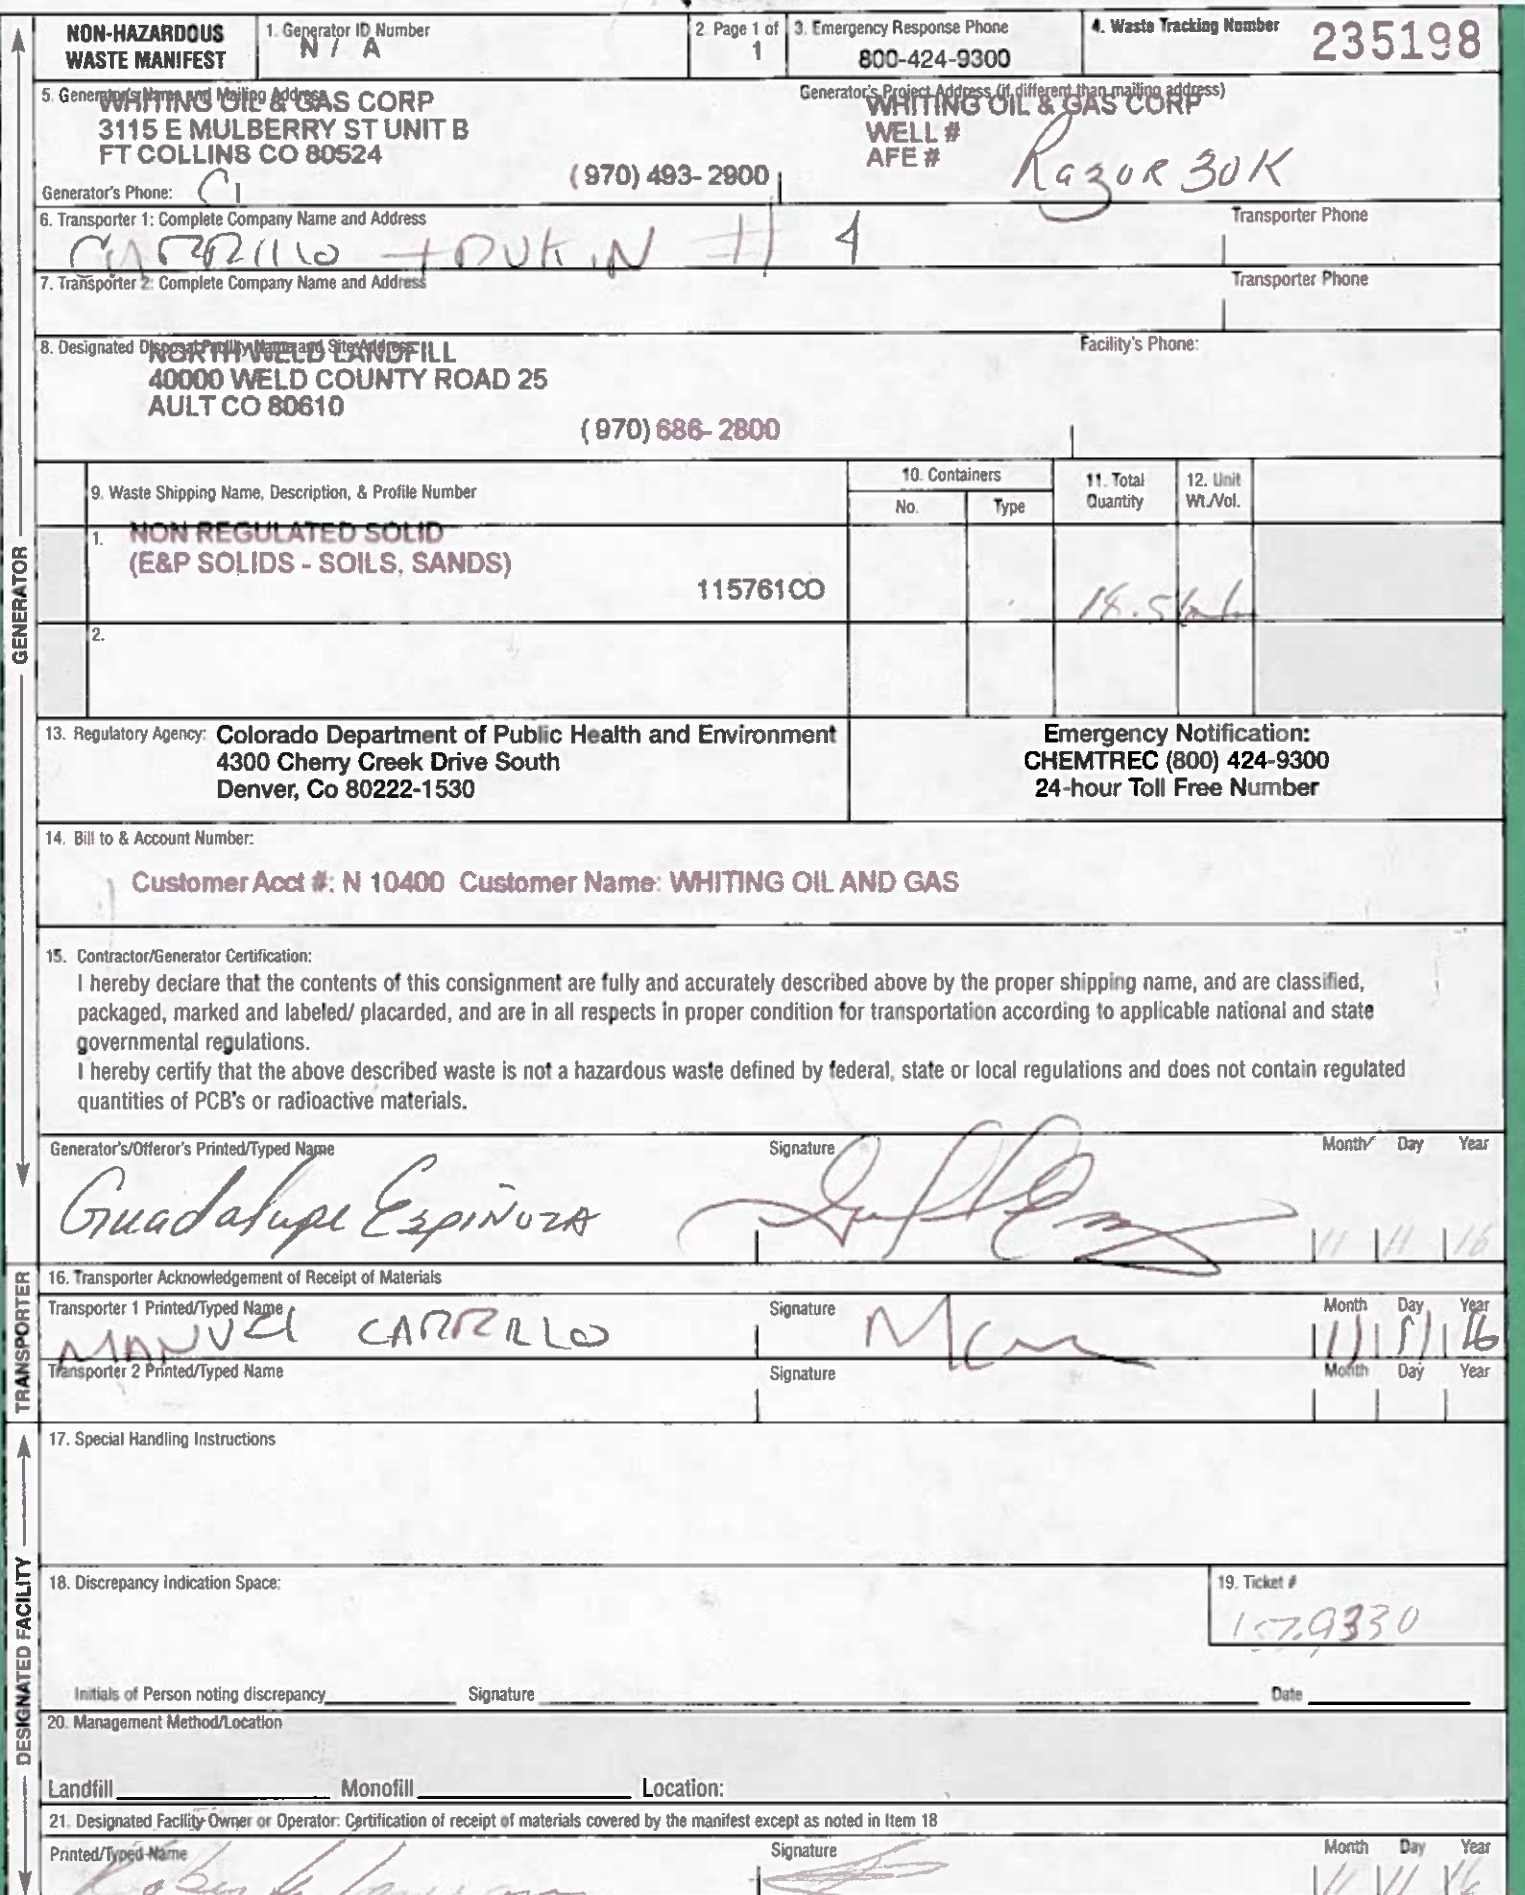 NON-HAZARDOUS
WASTE MANIFEST
1. Generator ID Number
N / A
2. Page 1 of
1
3. Emergency Response Phone
800-424-9300
4. Waste Tracking Number
235198
5. Generator's Name and Mailing Address
WHITING OIL & GAS CORP
3115 E MULBERRY ST UNIT B
FT COLLINS CO 80524
(970) 493-2900
Generator's Phone:
Generator's Project Address (if different than mailing address)
WHITING OIL & GAS CORP
WELL #
AFE #
Razor 30K
6. Transporter 1: Complete Company Name and Address
Transporter Phone
CARRillo # 4
7. Transporter 2: Complete Company Name and Address
Transporter Phone
8. Designated Disposal Facility Name and Site Address
Facility's Phone:
NORTH WELD LANDFILL
40000 WELD COUNTY ROAD 25
AULT CO 80610
(970) 686-2800
9. Waste Shipping Name, Description, & Profile Number
10. Containers
No.
Type
11. Total
Quantity
12. Unit
Wt./Vol.
1. NON REGULATED SOLID
(E&P SOLIDS - SOILS, SANDS)
115761CO
18.5
2.
13. Regulatory Agency: Colorado Department of Public Health and Environment
4300 Cherry Creek Drive South
Denver, Co 80222-1530
Emergency Notification:
CHEMTREC (800) 424-9300
24-hour Toll Free Number
14. Bill to & Account Number:
Customer Acct #: N 10400 Customer Name: WHITING OIL AND GAS
15. Contractor/Generator Certification:
I hereby declare that the contents of this consignment are fully and accurately described above by the proper shipping name, and are classified,
packaged, marked and labeled/ placarded, and are in all respects in proper condition for transportation according to applicable national and state
governmental regulations.
I hereby certify that the above described waste is not a hazardous waste defined by federal, state or local regulations and does not contain regulated
quantities of PCB's or radioactive materials.
Generator's/Offeror's Printed/Typed Name
Signature
Month Day Year
Guadalupe Espinoza
11 11 16
16. Transporter Acknowledgement of Receipt of Materials
Transporter 1 Printed/Typed Name
Signature
Month Day Year
MANUEl CARRillo
16
Transporter 2 Printed/Typed Name
Signature
Month Day Year
17. Special Handling Instructions
18. Discrepancy Indication Space:
19. Ticket #
Initials of Person noting discrepancy
Signature
Date
20. Management Method/Location
Landfill
Monofill
Location:
21. Designated Facility Owner or Operator: Certification of receipt of materials covered by the manifest except as noted in Item 18
Printed/Typed Name
Signature
Month Day Year
11 11 16
GENERATOR
TRANSPORTER
DESIGNATED FACILITY